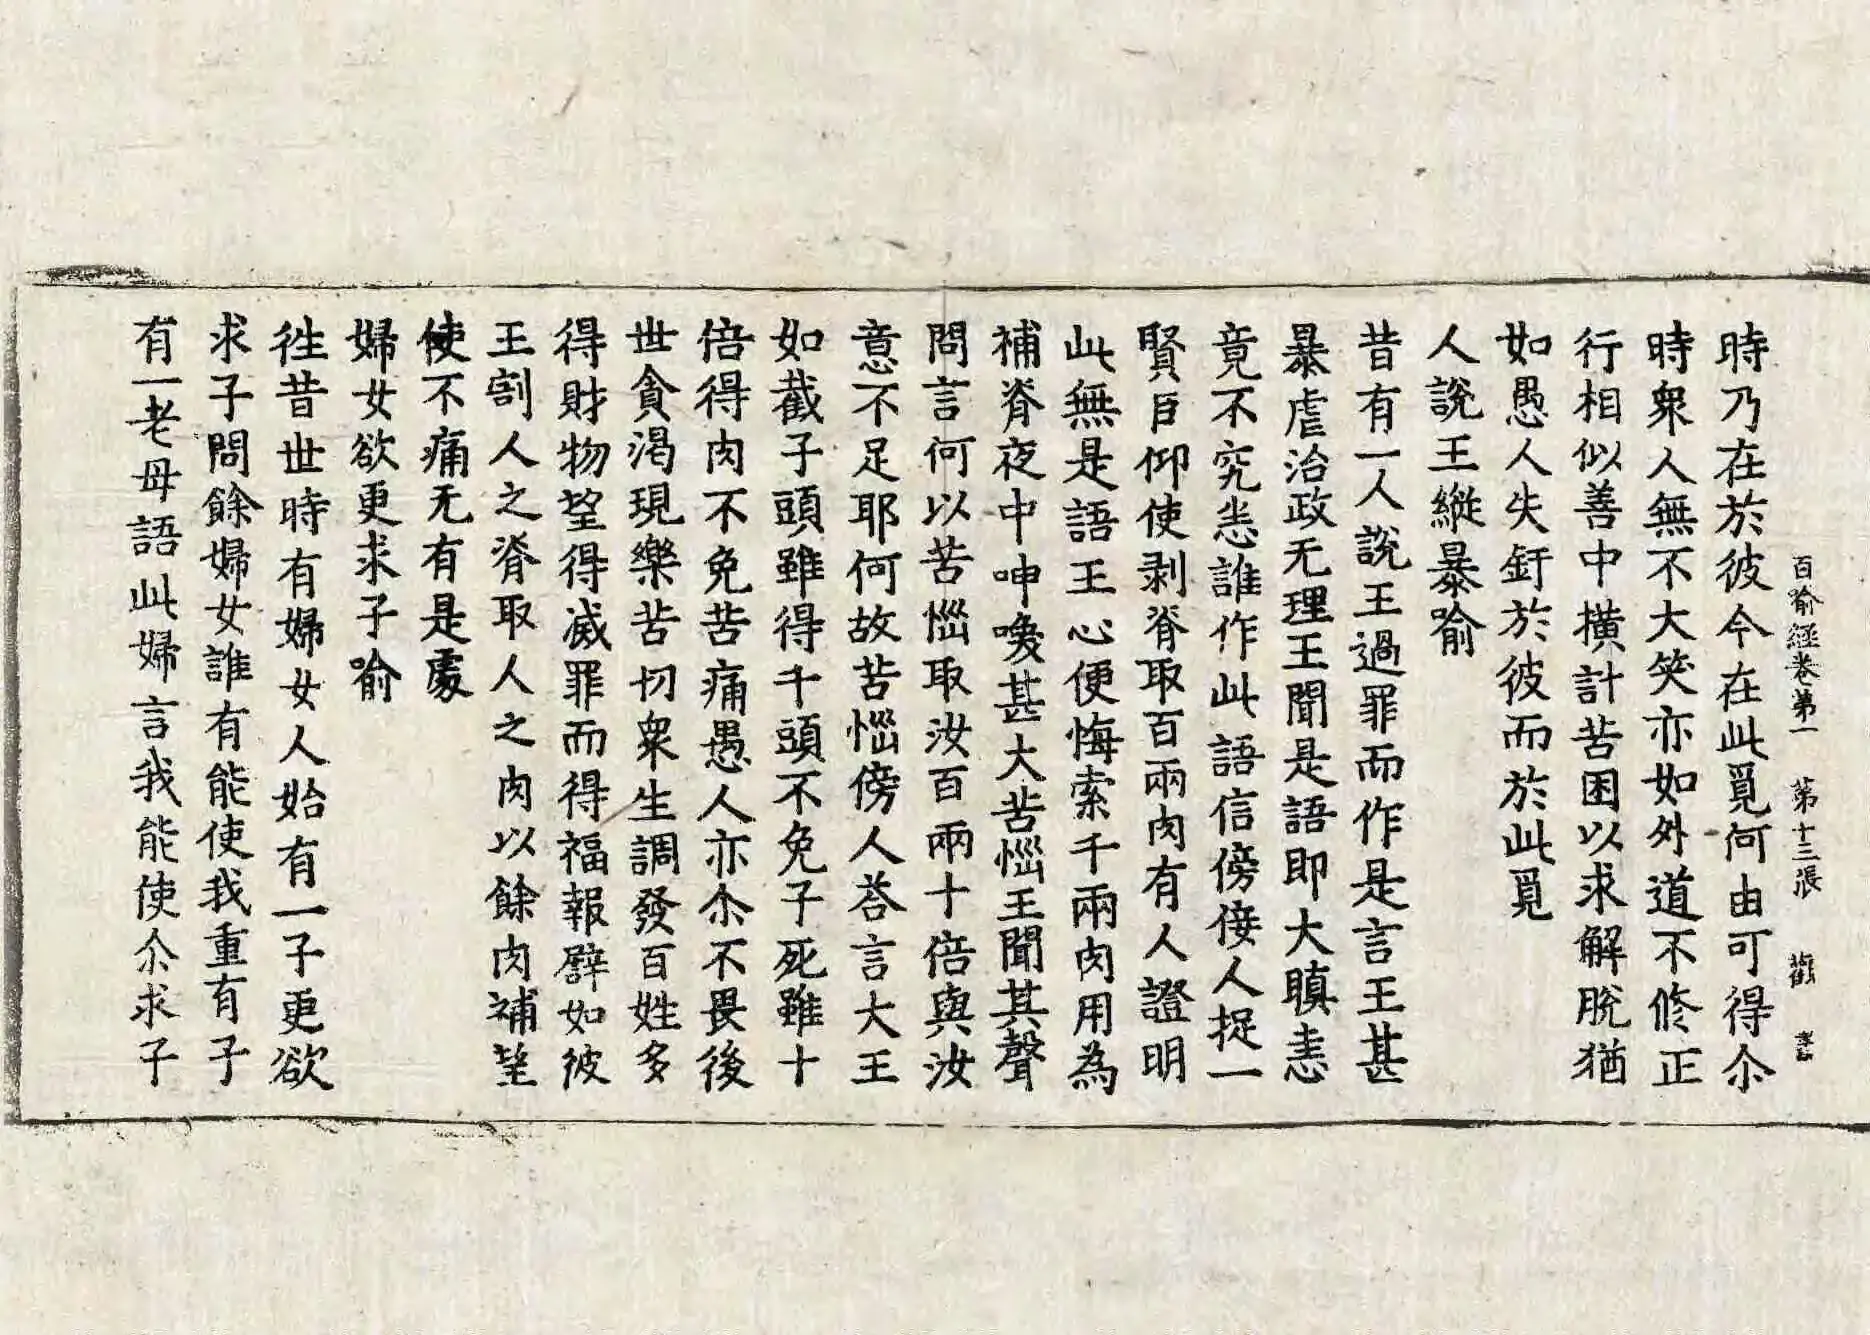 百喻經卷第一 第十三張 觀
時乃在於彼今在此覓何由可得尒
時衆人無不大笑亦如外道不修正
行相似善中横計苦困以求解脫猶
如愚人失釪於彼而於此覓
人說王縱暴喻
昔有一人說王過罪而作是言王甚
暴虐治政无理王聞是語即大瞋恚
竟不究悉誰作此語信傍佞人捉一
賢臣仰使剥脊取百兩肉有人證明
此無是語王心便悔索千兩肉用為
補脊夜中呻喚甚大苦惱王聞其聲
問言何以苦惱取汝百兩十倍與汝
意不足耶何故苦惱傍人荅言大王
如截子頭雖得千頭不免子死雖十
倍得肉不免苦痛愚人亦尒不畏後
世貪渴現樂苦切衆生調發百姓多
得財物望得滅罪而得福報譬如彼
王割人之脊取人之肉以餘肉補望
使不痛无有是處
婦女欲更求子喻
徃昔世時有婦女人始有一子更欲
求子問餘婦女誰有能使我重有子
有一老母語此婦言我能使尒求子